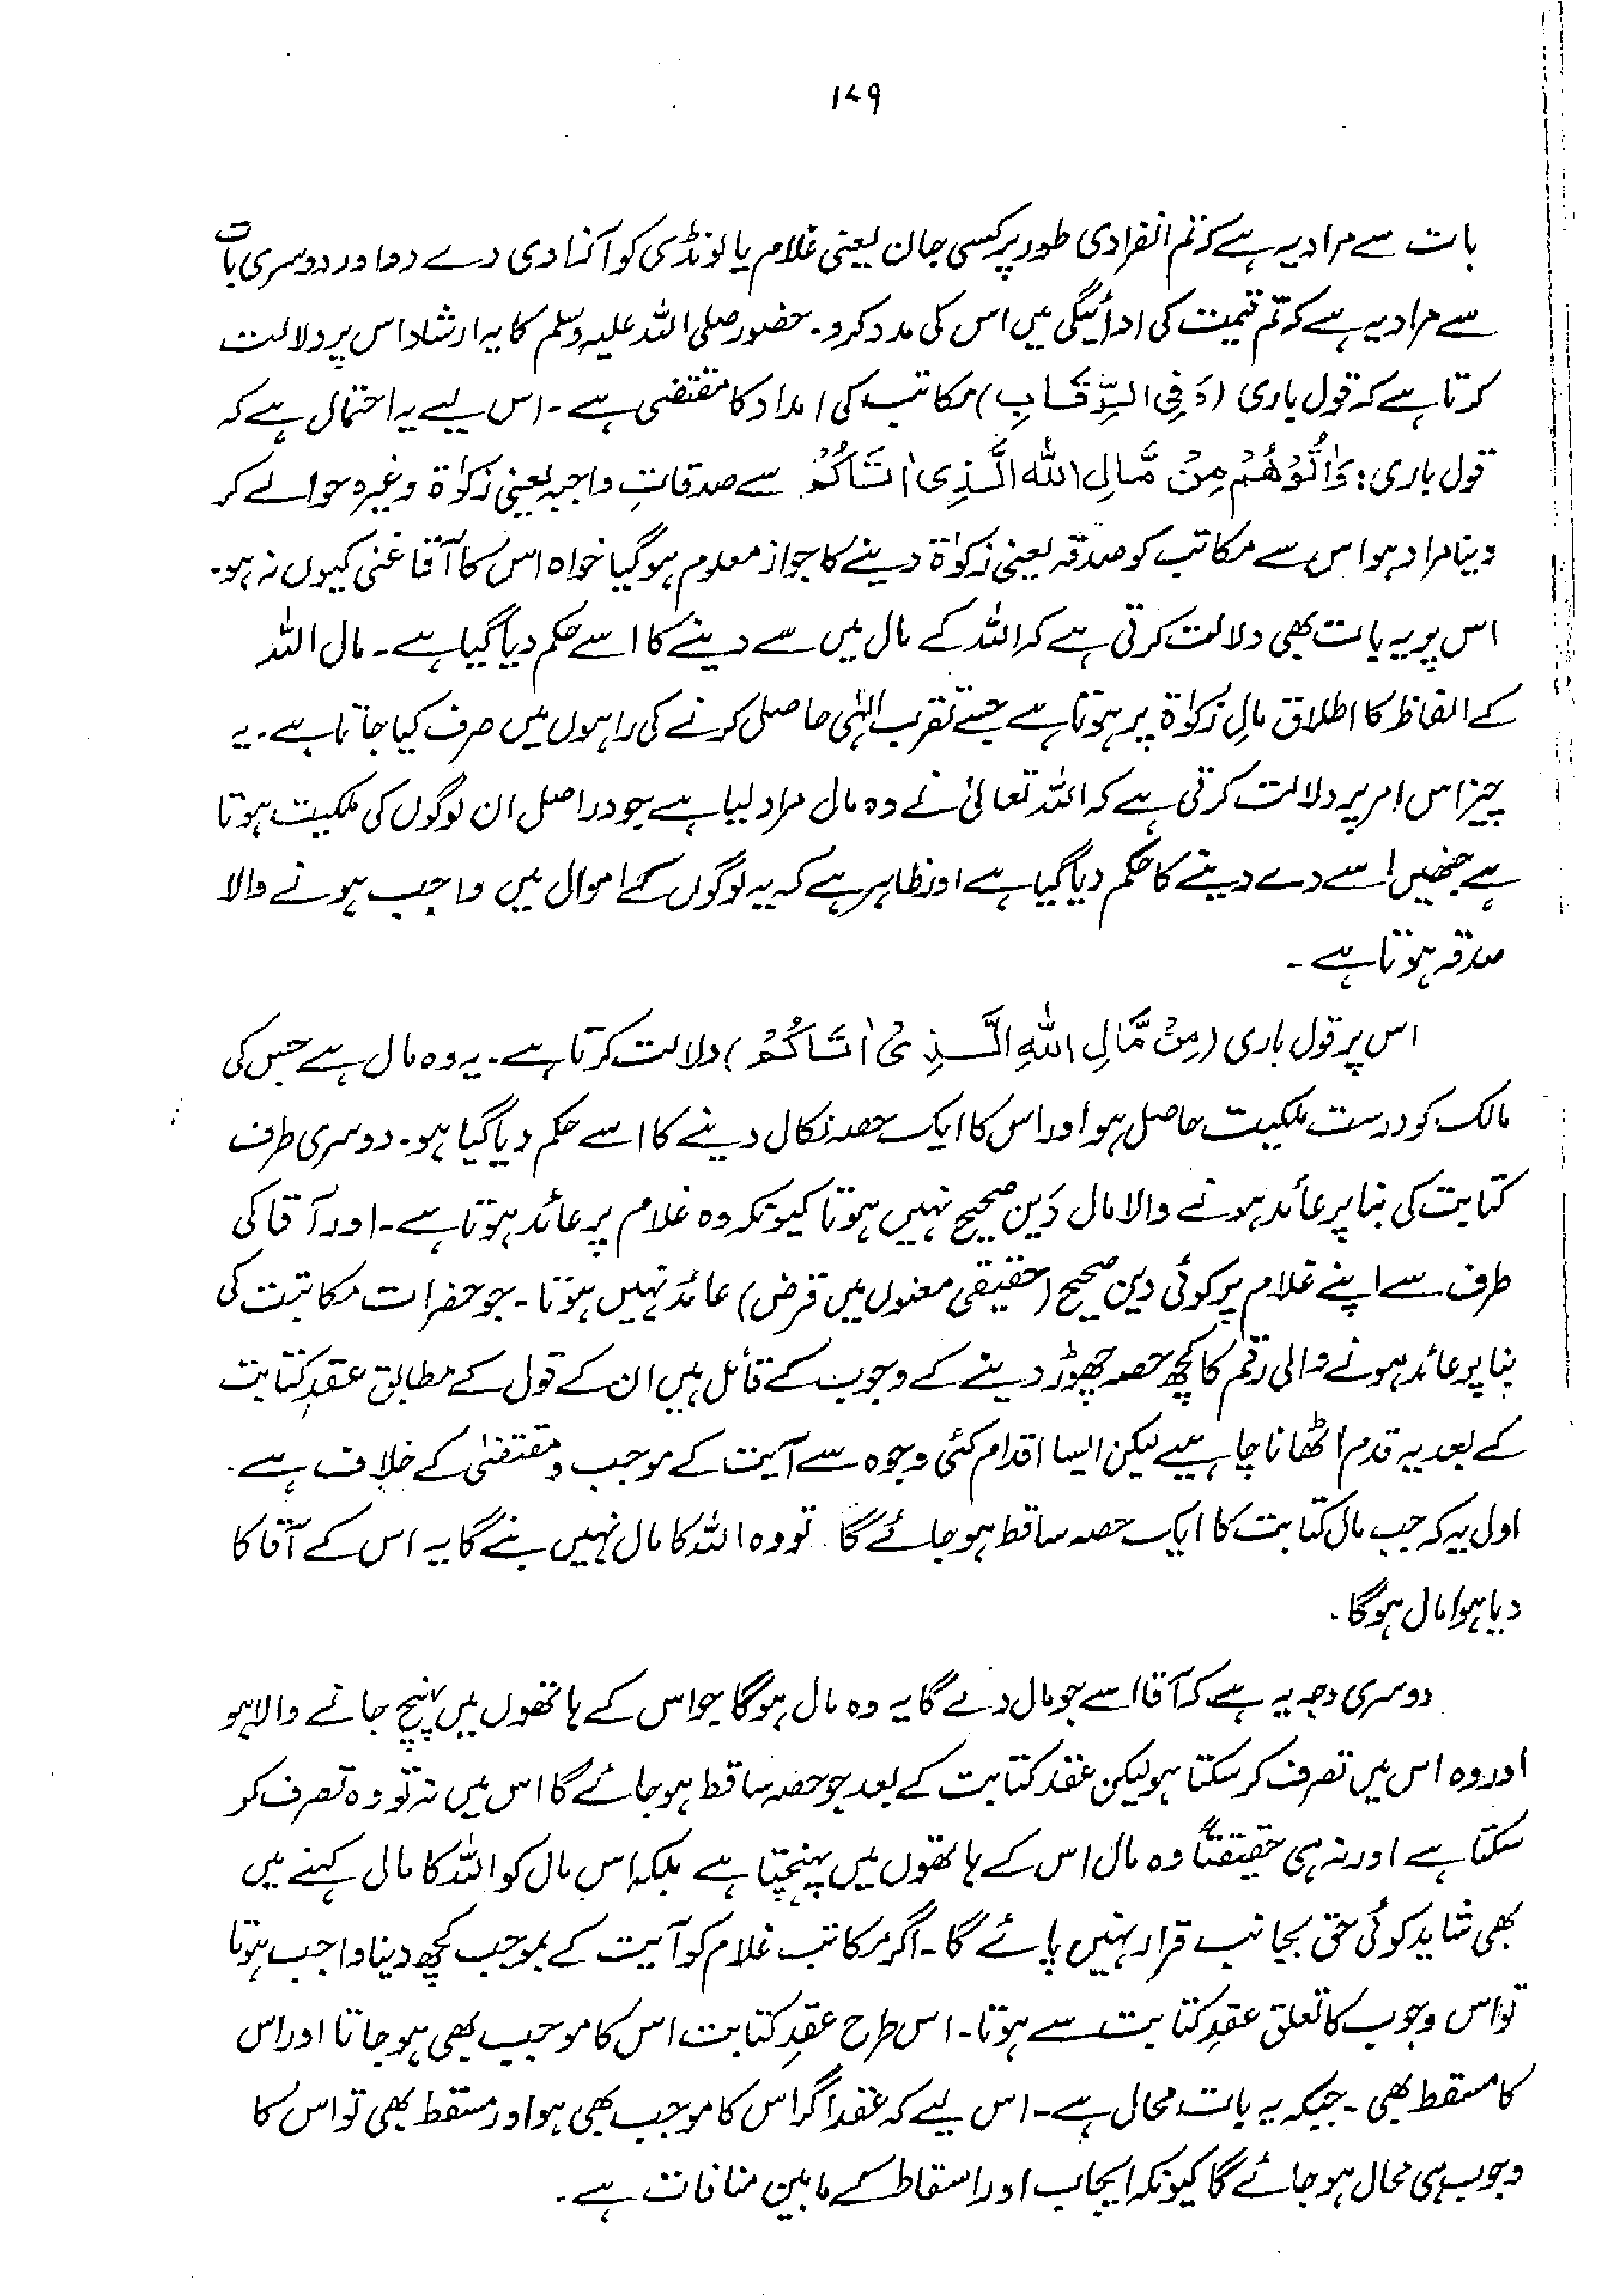 ۱۷۹
بات سے مراد یہ ہے کہ تم انفرادی طور پر کسی جان یعنی غلام یا لونڈی کو آزادی دے دو اور دوسری بات
سے مراد یہ ہے کہ تم قیمت کی ادائیگی میں اس کی مدد کرو۔ حضور صلی اللہ علیہ وسلم کا یہ ارشاد اس پر دلالت
کرتا ہے کہ قول باری (وَفِی الرِّقَابِ) مکاتب کی امداد کا مقتضی ہے۔ اس لیے یہ احتمال ہے کہ
قول باری: وَاٰتُوْهُمْ مِنْ مَّالِ اللهِ الَّذِی اٰتَاکُمْ سے صدقاتِ واجبہ یعنی زکوٰۃ وغیرہ حوالے کر
دینا مراد ہو اس سے مکاتب کو صدقہ یعنی زکوٰۃ دینے کا جواز معلوم ہو گیا خواہ اس کا آقا غنی کیوں نہ ہو۔
اس پر یہ بات بھی دلالت کرتی ہے کہ اللہ کے مال میں سے دینے کا اسے حکم دیا گیا ہے۔ مال اللہ
کے الفاظ کا اطلاق مالِ زکوٰۃ پر ہوتا ہے جسے تقرب الٰہی حاصل کرنے کی راہوں میں صرف کیا جاتا ہے۔ یہ
چیز اس امر پر دلالت کرتی ہے کہ اللہ تعالیٰ نے وہ مال مراد لیا ہے جو دراصل ان لوگوں کی ملکیت ہوتا
ہے جنھیں اسے دے دینے کا حکم دیا گیا ہے اور ظاہر ہے کہ یہ لوگوں کے اموال میں واجب ہونے والا
صدقہ ہوتا ہے۔
اس پر قول باری (مِنْ مَّالِ اللهِ الَّذِیْ اٰتَاکُمْ) دلالت کرتا ہے۔ یہ وہ مال ہے جس کی
مالک کو درست ملکیت حاصل ہو اور اس کا ایک حصہ نکال دینے کا اسے حکم دیا گیا ہو۔ دوسری طرف
کتابت کی بنا پر عائد ہونے والا مال دَین صحیح نہیں ہوتا کیونکہ وہ غلام پر عائد ہوتا ہے۔ اور آقا کی
طرف سے اپنے غلام پر کوئی دین صحیح (حقیقی معنوں میں قرض) عائد نہیں ہوتا۔ جو حضرات مکاتبت کی
بنا پر عائد ہونے والی رقم کا کچھ حصہ چھوڑ دینے کے وجوب کے قائل ہیں ان کے قول کے مطابق عقدِ کتابت
کے بعد یہ قدم اٹھانا چاہیے لیکن ایسا اقدام کئی وجوہ سے آیت کے موجب و مقتضیٰ کے خلاف ہے۔
اول یہ کہ جب مال کتابت کا ایک حصہ ساقط ہو جائے گا۔ تو وہ اللہ کا مال نہیں بنے گا یہ اس کے آقا کا
دیا ہوا مال ہوگا۔
دوسری وجہ یہ ہے کہ آقا اسے جو مال دے گا یہ وہ مال ہوگا جو اس کے ہاتھوں میں پہنچ جانے والا ہو
اور وہ اس میں تصرف کر سکتا ہو لیکن عقد کتابت کے بعد جو حصہ ساقط ہو جائے گا اس میں نہ تو وہ تصرف کر
سکتا ہے اور نہ ہی حقیقتاً وہ مال اس کے ہاتھوں میں پہنچتا ہے بلکہ اس مال کو اللہ کا مال کہنے میں
بھی شاید کوئی حق بجانب قرار نہیں پائے گا۔ اگر مکاتب غلام کو آیت کے بموجب کچھ دینا واجب ہوتا
تو اس وجوب کا تعلق عقدِ کتابت سے ہوتا۔ اس طرح عقدِ کتابت اس کا موجب بھی ہو جاتا اور اس
کا مسقط بھی۔ جبکہ یہ بات محال ہے۔ اس لیے کہ عقد اگر اس کا موجب بھی ہو اور مسقط بھی تو اس کا
وجوب ہی محال ہو جائے گا کیونکہ ایجاب اور اسقاط کے مابین منافات ہے۔